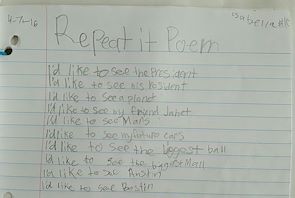 4-7-16
Isabella
Repeat it Poem
I'd like to see the President
I'd like to see his resident
I'd like to see a planet
I'd like to see my friend Janet
I'd like to see Mars
I'd like to see my future cars
I'd like to see the biggest ball
I'd like to see the biggest Mall
I'd like to see Austin
I'd like to see Bostin